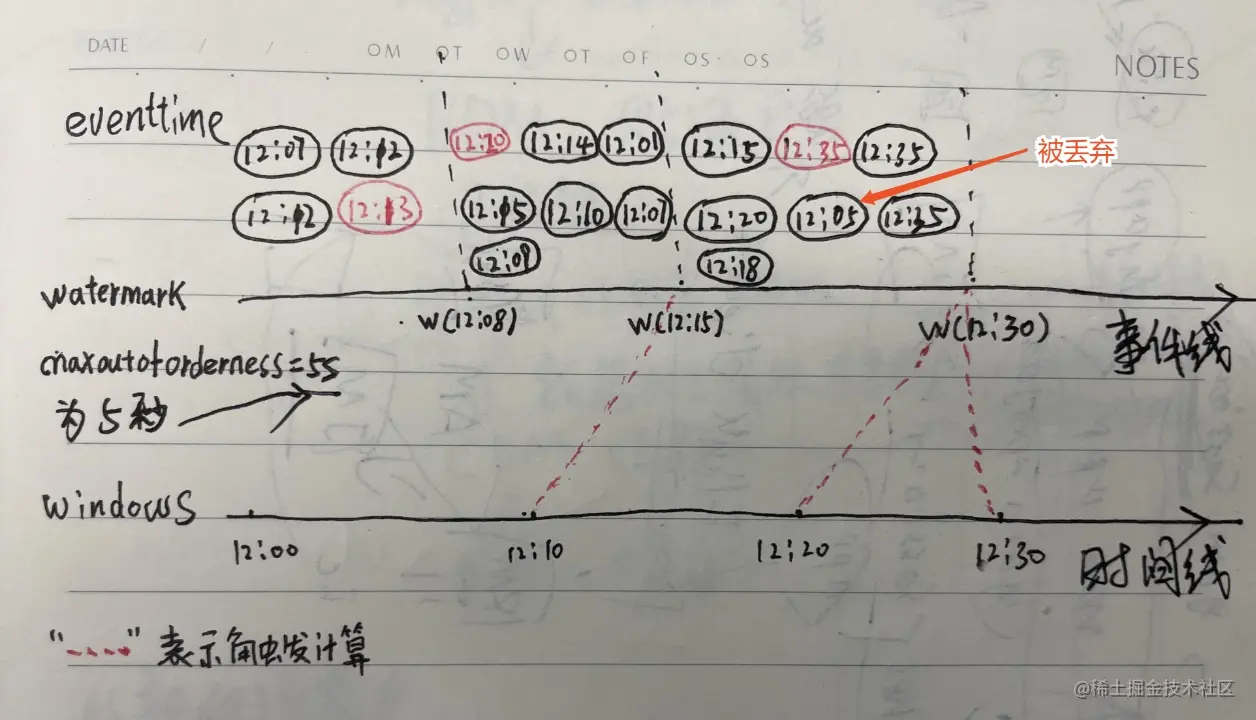 DATE / / OM OT OW OT OF OS OS NOTES
eventtime
12:07 12:12 12:20 12:14 12:01 12:15 12:35 12:35 被丢弃
12:12 12:13 12:15 12:10 12:07 12:20 12:05 12:35
12:09 12:18
watermark
W(12:08) W(12:15) W(12:30) 事件线
maxoutoforderness=5s
为5秒
windows
12:00 12:10 12:20 12:30 时间线
"----" 表示触发计算
@稀土掘金技术社区